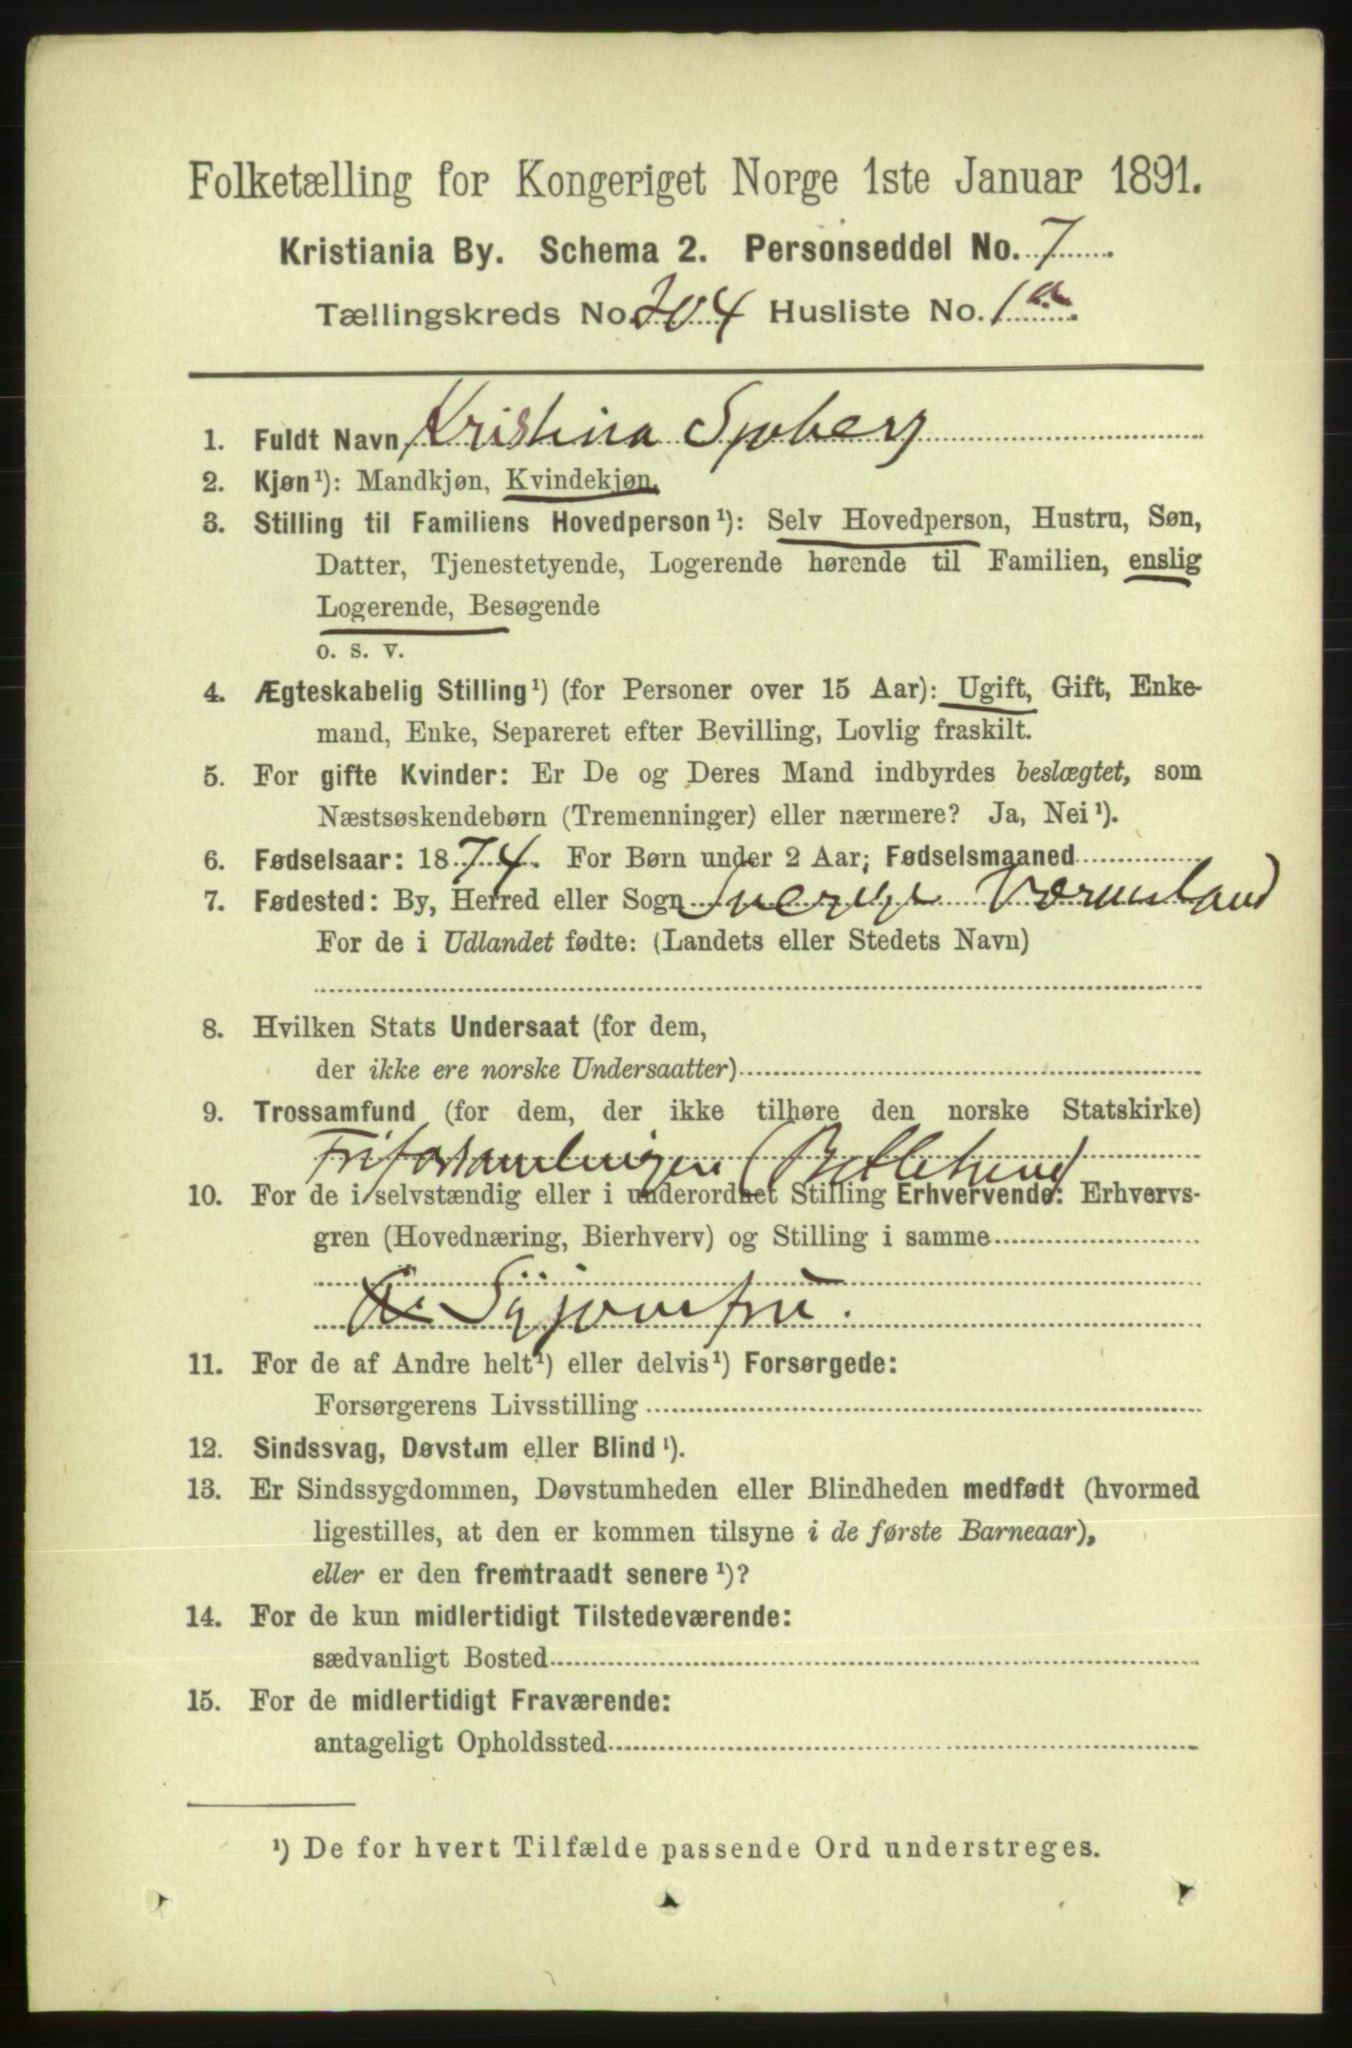 Folketælling for Kongeriget Norge 1ste Januar 1891.
Kristiania By. Schema 2. Personseddel No. 7
Tællingskreds No. 204 Husliste No. 1a
1. Fuldt Navn Kristina Sjøberg
2. Kjøn¹): Mandkjøn, Kvindekjøn.
3. Stilling til Familiens Hovedperson¹): Selv Hovedperson, Hustru, Søn,
Datter, Tjenestetyende, Logerende hørende til Familien, enslig
Logerende, Besøgende
o. s. v.
4. Ægteskabelig Stilling¹) (for Personer over 15 Aar): Ugift, Gift, Enke-
mand, Enke, Separeret efter Bevilling, Lovlig fraskilt.
5. For gifte Kvinder: Er De og Deres Mand indbyrdes beslægtet, som
Næstsøskendebørn (Tremenninger) eller nærmere? Ja, Nei¹).
6. Fødselsaar: 1874. For Børn under 2 Aar; Fødselsmaaned
7. Fødested: By, Herred eller Sogn Sverige Værmland
For de i Udlandet fødte: (Landets eller Stedets Navn)
8. Hvilken Stats Undersaat (for dem,
der ikke ere norske Undersaatter)
9. Trossamfund (for dem, der ikke tilhøre den norske Statskirke)
Friforsamlingen (Betlehem)
10. For de i selvstændig eller i underordnet Stilling Erhvervende: Erhvervs-
gren (Hovednæring, Bierhverv) og Stilling i samme
Syjomfru.
11. For de af Andre helt¹) eller delvis¹) Forsørgede:
Forsørgerens Livsstilling
12. Sindssvag, Døvstum eller Blind¹).
13. Er Sindssygdommen, Døvstumheden eller Blindheden medfødt (hvormed
ligestilles, at den er kommen tilsyne i de første Barneaar),
eller er den fremtraadt senere¹)?
14. For de kun midlertidigt Tilstedeværende:
sædvanligt Bosted
15. For de midlertidigt Fraværende:
antageligt Opholdssted
¹) De for hvert Tilfælde passende Ord understreges.